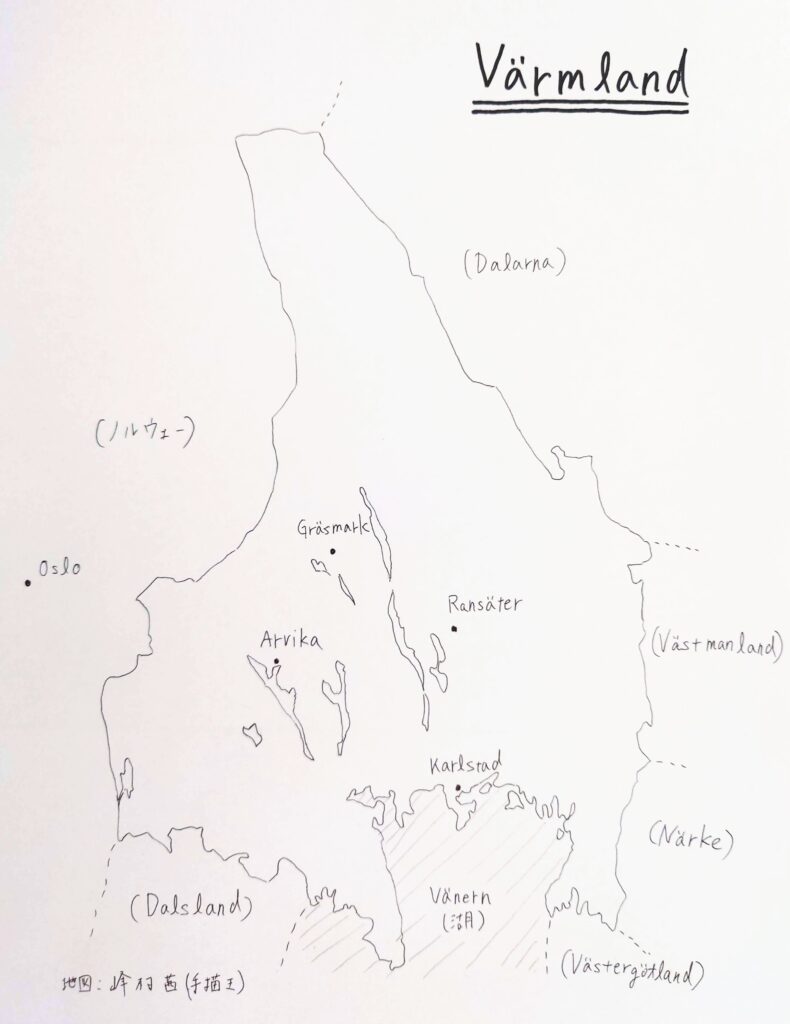 Värmland
(Dalarna)
(ノルウェー)
Gräsmark
Oslo
Ransäter
Arvika
(Västmanland)
Karlstad
(Närke)
(Dalsland)
Vänern
(湖)
(Västergötland)
地図: 峰村茜(手描き)